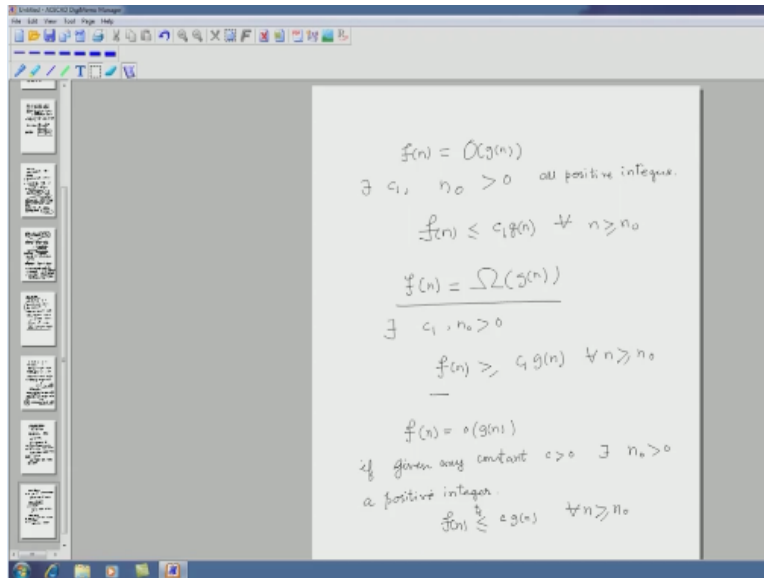 Untitled - ACECAD DigiMemo Manager
File Edit View Tool Page Help
f(n) = O(g(n))
∃ c₁, n₀ > 0 all positive integers.
f(n) ≤ c₁g(n) ∀ n ≥ n₀
f(n) = Ω(g(n))
∃ c₁, n₀ > 0
f(n) ≥ c₁ g(n) ∀ n ≥ n₀
f(n) = o(g(n))
if given any constant c > 0 ∃ n₀ > 0
a positive integer.
f(n) ≤ c g(n) ∀ n ≥ n₀